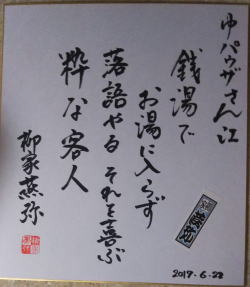 ゆパウザさん江
銭湯で
お湯に入らず
落語やる それを喜ぶ
粋な客人
柳家燕弥
2017-6-28